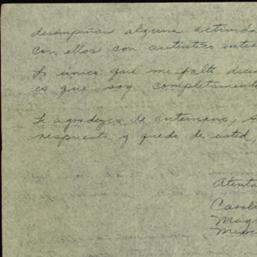 desempeñar alguna actividad
con ellos con autentico inte
Lo unico que me falta deci
es que soy completamente
Le agradezco de antemano, s
respuesta y quedo de usted
Atenta